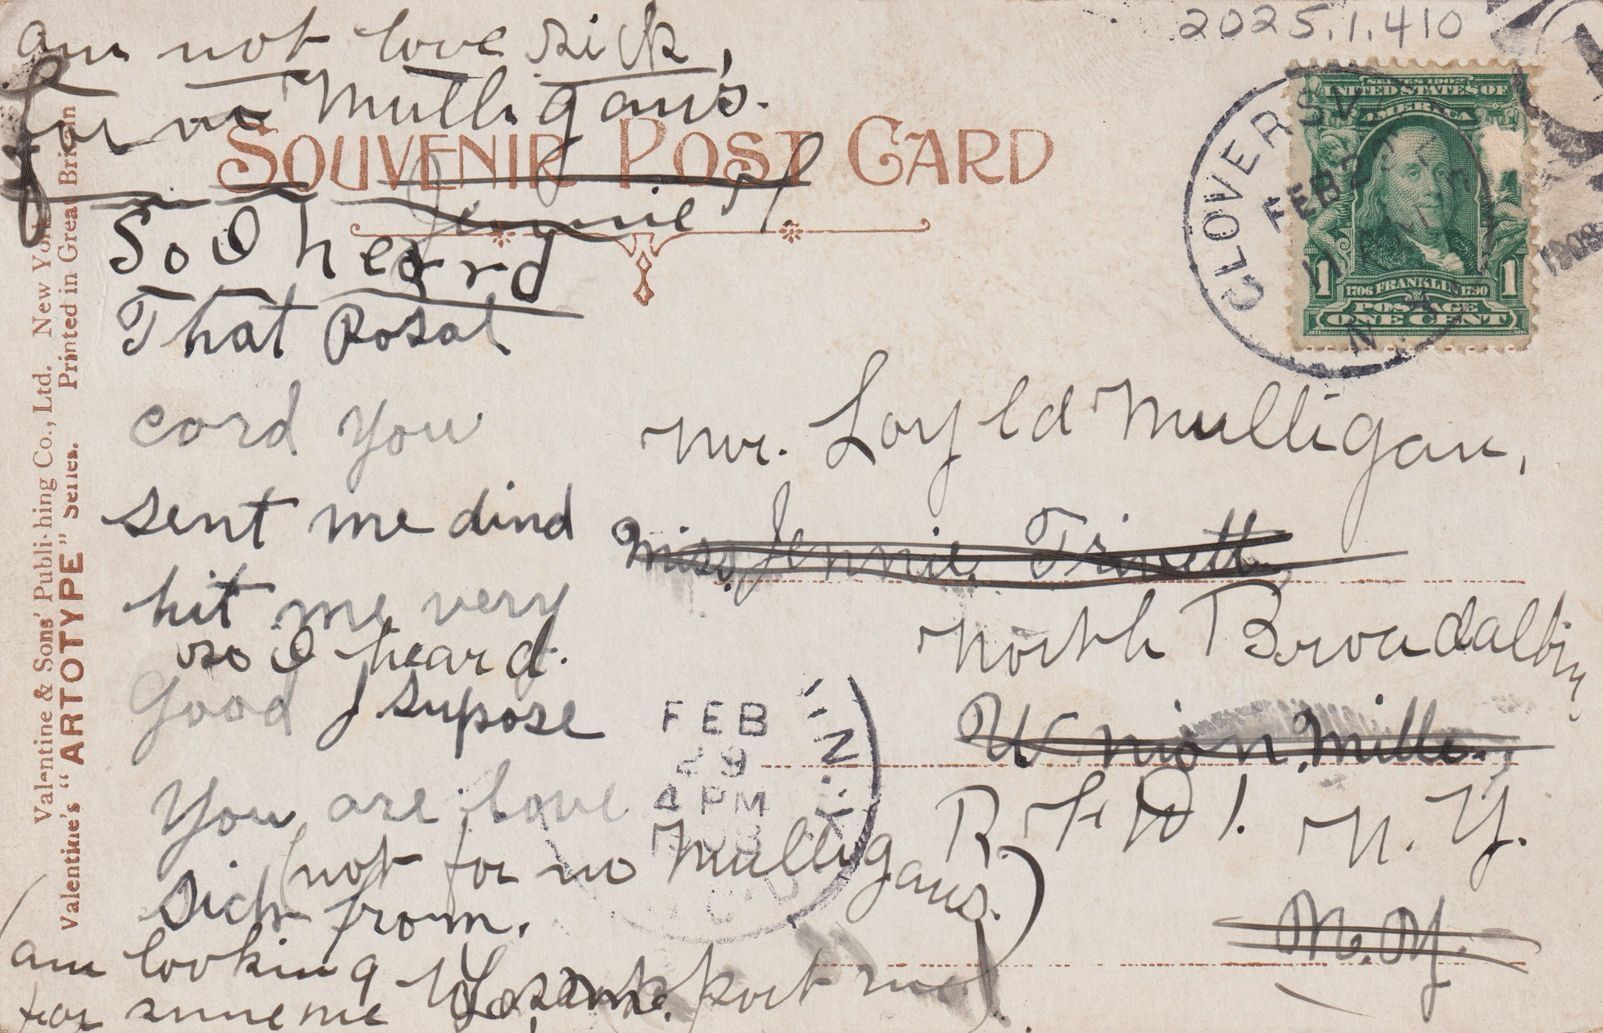 2025.1.410
am not love sick,
for no Mulligan's.
SOUVENIR POST CARD
Jennie
So I heard
That Posal
cord you
sent me dind
hit me very
so I heard.
Good I supose
You are love
(not for no Mulligans.)
sick from.
(am looking
for some one
to support me).
Mr. Loyld Mulligan,
Miss. Jennie Trivett,
North Broadalbin,
Union Mills,
R F D 1. N. Y.
N. Y.
SERIES 1902
UNITED STATES OF
AMERICA
1706 FRANKLIN 1790
1 1
POSTAGE
ONE CENT
GLOVERSVILLE
FEB
N.Y.
1908
FEB
29
4 PM
1908
N.Y.
Valentine & Sons' Publishing Co., Ltd. New York
Valentine's "ARTOTYPE" Series. Printed in Great Britain